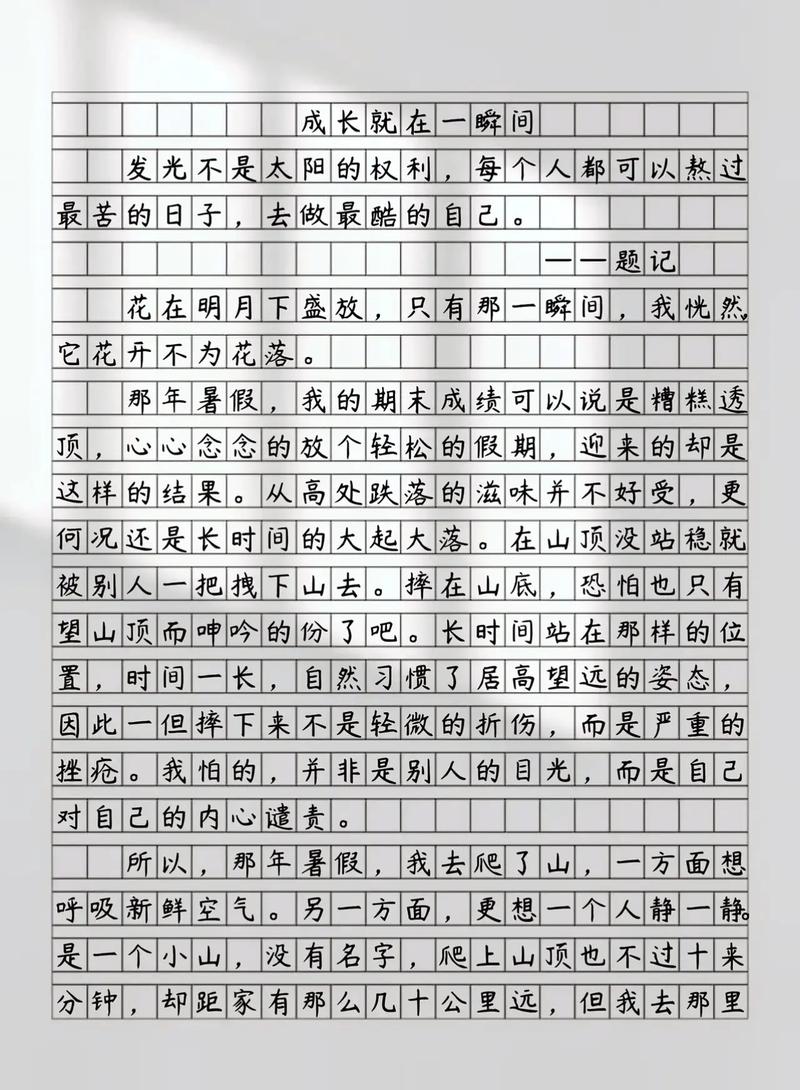 成长就在一瞬间
发光不是太阳的权利，每个人都可以熬过
最苦的日子，去做最酷的自己。
——题记
花在明月下盛放，只有那一瞬间，我恍然，
它花开不为花落。
那年暑假，我的期末成绩可以说是糟糕透
顶，心心念念的放个轻松的假期，迎来的却是
这样的结果。从高处跌落的滋味并不好受，更
何况还是长时间的大起大落。在山顶没站稳就
被别人一把拽下山去。摔在山底，恐怕也只有
望山顶而呻吟的份了吧。长时间站在那样的位
置，时间一长，自然习惯了居高望远的姿态，
因此一但摔下来不是轻微的折伤，而是严重的
挫疮。我怕的，并非是别人的目光，而是自己
对自己的内心谴责。
所以，那年暑假，我去爬了山，一方面想
呼吸新鲜空气。另一方面，更想一个人静一静。
是一个小山，没有名字，爬上山顶也不过十来
分钟，却距家有那么几十公里远，但我去那里